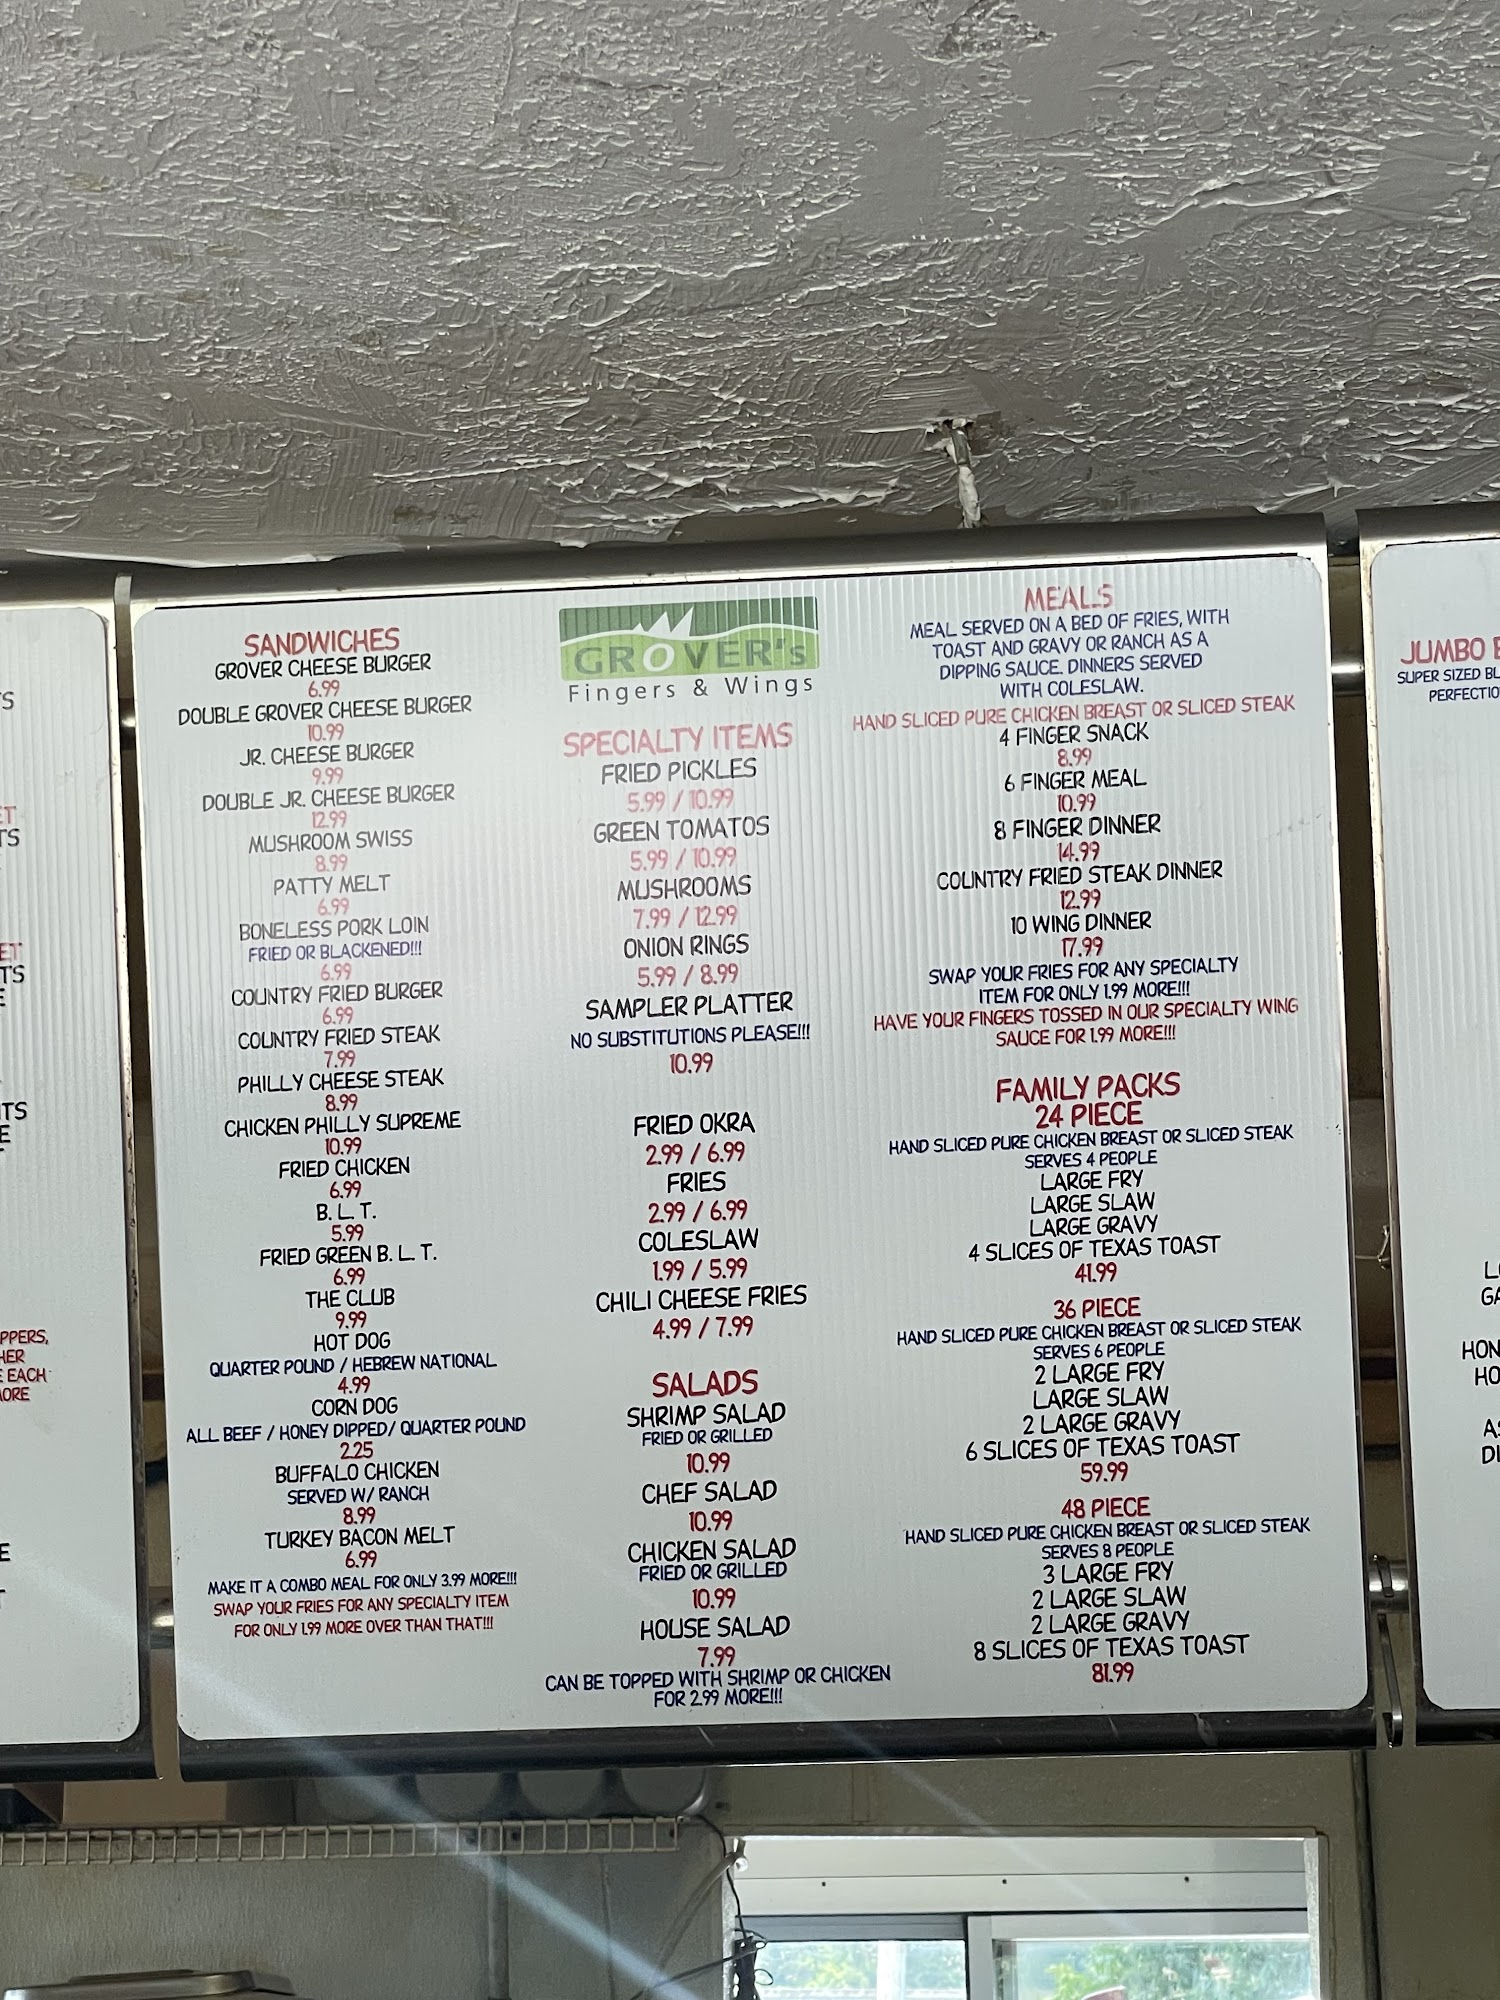 SANDWICHES
GROVER CHEESE BURGER
6.99
DOUBLE GROVER CHEESE BURGER
10.99
JR. CHEESE BURGER
9.99
DOUBLE JR. CHEESE BURGER
12.99
MUSHROOM SWISS
8.99
PATTY MELT
6.99
BONELESS PORK LOIN
FRIED OR BLACKENED!!!
6.99
COUNTRY FRIED BURGER
6.99
COUNTRY FRIED STEAK
7.99
PHILLY CHEESE STEAK
8.99
CHICKEN PHILLY SUPREME
10.99
FRIED CHICKEN
6.99
B. L. T.
5.99
FRIED GREEN B. L. T.
6.99
THE CLUB
9.99
HOT DOG
QUARTER POUND / HEBREW NATIONAL
4.99
CORN DOG
ALL BEEF / HONEY DIPPED/ QUARTER POUND
2.25
BUFFALO CHICKEN
SERVED W/ RANCH
8.99
TURKEY BACON MELT
6.99
MAKE IT A COMBO MEAL FOR ONLY 3.99 MORE!!!
SWAP YOUR FRIES FOR ANY SPECIALTY ITEM
FOR ONLY 1.99 MORE OVER THAN THAT!!!
GROVER's
Fingers & Wings
SPECIALTY ITEMS
FRIED PICKLES
5.99 / 10.99
GREEN TOMATOS
5.99 / 10.99
MUSHROOMS
7.99 / 12.99
ONION RINGS
5.99 / 8.99
SAMPLER PLATTER
NO SUBSTITUTIONS PLEASE!!!
10.99
FRIED OKRA
2.99 / 6.99
FRIES
2.99 / 6.99
COLESLAW
1.99 / 5.99
CHILI CHEESE FRIES
4.99 / 7.99
SALADS
SHRIMP SALAD
FRIED OR GRILLED
10.99
CHEF SALAD
10.99
CHICKEN SALAD
FRIED OR GRILLED
10.99
HOUSE SALAD
7.99
CAN BE TOPPED WITH SHRIMP OR CHICKEN
FOR 2.99 MORE!!!
MEALS
MEAL SERVED ON A BED OF FRIES, WITH
TOAST AND GRAVY OR RANCH AS A
DIPPING SAUCE. DINNERS SERVED
WITH COLESLAW.
HAND SLICED PURE CHICKEN BREAST OR SLICED STEAK
4 FINGER SNACK
8.99
6 FINGER MEAL
10.99
8 FINGER DINNER
14.99
COUNTRY FRIED STEAK DINNER
12.99
10 WING DINNER
17.99
SWAP YOUR FRIES FOR ANY SPECIALTY
ITEM FOR ONLY 1.99 MORE!!!
HAVE YOUR FINGERS TOSSED IN OUR SPECIALTY WING
SAUCE FOR 1.99 MORE!!!
FAMILY PACKS
24 PIECE
HAND SLICED PURE CHICKEN BREAST OR SLICED STEAK
SERVES 4 PEOPLE
LARGE FRY
LARGE SLAW
LARGE GRAVY
4 SLICES OF TEXAS TOAST
41.99
36 PIECE
HAND SLICED PURE CHICKEN BREAST OR SLICED STEAK
SERVES 6 PEOPLE
2 LARGE FRY
LARGE SLAW
2 LARGE GRAVY
6 SLICES OF TEXAS TOAST
59.99
48 PIECE
HAND SLICED PURE CHICKEN BREAST OR SLICED STEAK
SERVES 8 PEOPLE
3 LARGE FRY
2 LARGE SLAW
2 LARGE GRAVY
8 SLICES OF TEXAS TOAST
81.99
JUMBO
SUPER SIZED
EACH